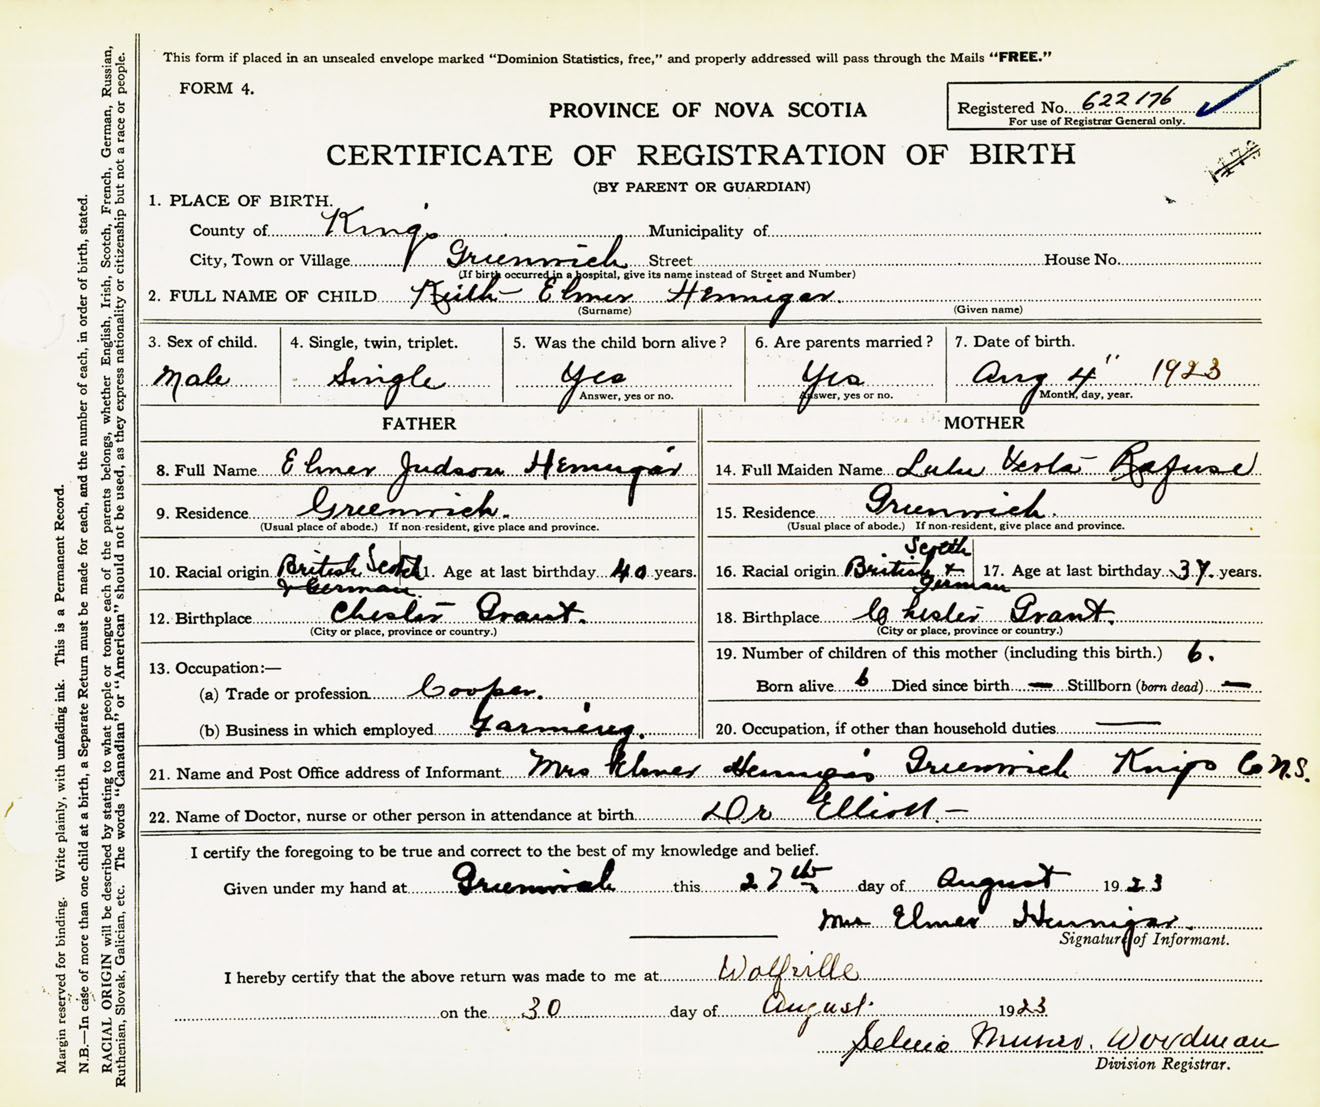 This form if placed in an unsealed envelope marked “Dominion Statistics, free,” and properly addressed will pass through the Mails “FREE.”
FORM 4.
Registered No. 622176
For use of Registrar General only.
PROVINCE OF NOVA SCOTIA
CERTIFICATE OF REGISTRATION OF BIRTH
(BY PARENT OR GUARDIAN)
1. PLACE OF BIRTH.
County of King's Municipality of
City, Town or Village Greenwich Street House No.
(If birth occurred in a hospital, give its name instead of Street and Number)
2. FULL NAME OF CHILD Keith Elmer Hennigar
(Surname) (Given name)
3. Sex of child. 4. Single, twin, triplet. 5. Was the child born alive? 6. Are parents married? 7. Date of birth.
Male Single Yes Yes Aug 4" 1923
Answer, yes or no. Answer, yes or no. Month, day, year.
FATHER MOTHER
8. Full Name Elmer Judson Hennigar 14. Full Maiden Name Lulu Rafuse
9. Residence Greenwich. 15. Residence Greenwich.
(Usual place of abode.) If non-resident, give place and province. (Usual place of abode.) If non-resident, give place and province.
10. Racial origin British Scotch & German 11. Age at last birthday 40 years. 16. Racial origin British Scotch & German 17. Age at last birthday 37. years.
12. Birthplace Chester Grant. 18. Birthplace Chester Grant.
(City or place, province or country.) (City or place, province or country.)
13. Occupation:— 19. Number of children of this mother (including this birth.) 6.
(a) Trade or profession Cooper. Born alive 6 Died since birth — Stillborn (born dead) —
(b) Business in which employed Farming. 20. Occupation, if other than household duties —
21. Name and Post Office address of Informant Mrs Elmer Hennigar Greenwich Kings Co N.S.
22. Name of Doctor, nurse or other person in attendance at birth Dr Elliott —
I certify the foregoing to be true and correct to the best of my knowledge and belief.
Given under my hand at Greenwich this 27th day of August 1923
Mrs Elmer Hennigar.
Signature of Informant.
I hereby certify that the above return was made to me at Wolfville
on the 30 day of August 1923
Munro. Woodman
Division Registrar.
Margin reserved for binding. Write plainly, with unfading ink. This is a Permanent Record.
N.B.—In case of more than one child at a birth, a Separate Return must be made for each, and the number of each, in order of birth, stated.
RACIAL ORIGIN will be described by stating to what people or tongue each of the parents belongs, whether English, Irish, Scotch, French, German, Russian,
Ruthenian, Slovak, Galician, etc. The words “Canadian” or “American” should not be used, as they express nationality or citizenship but not a race or people.